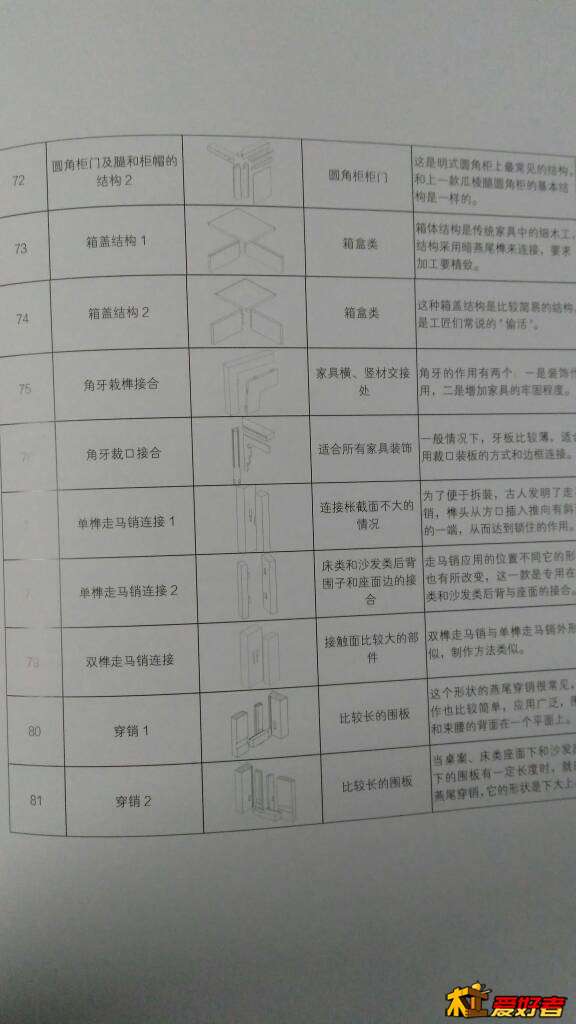 72
圆角柜门及腿和柜帽的
结构2
圆角柜柜门
这是明式圆角柜上最常见的结构,
和上一款瓜棱腿圆角柜的基本结
构是一样的。
73
箱盖结构1
箱盒类
箱体结构是传统家具中的细木工,
结构采用暗燕尾榫来连接,要求
加工要精致。
74
箱盖结构2
箱盒类
这种箱盖结构是比较简易的结构,
是工匠们常说的“偷活”。
75
角牙栽榫接合
家具横、竖材交接
处
角牙的作用有两个:一是装饰作
用,二是增加家具的牢固程度。
角牙裁口接合
适合所有家具装饰
一般情况下,牙板比较薄,适合
用裁口装板的方式和边框连接。
单榫走马销连接1
连接枨截面不大的
情况
为了便于拆装,古人发明了走
销,榫头从方口插入推向有斜
的一端,从而达到锁住的作用。
7
单榫走马销连接2
床类和沙发类后背
围子和座面边的接
合
走马销应用的位置不同它的形
也有所改变,这一款是专用在
类和沙发类后背与座面的接合。
79
双榫走马销连接
接触面比较大的部
件
双榫走马销与单榫走马销外形
似,制作方法类似。
80
穿销1
比较长的围板
这个形状的燕尾穿销很常见,
作也比较简单,应用广泛,
和束腰的背面在一个平面上。
81
穿销2
比较长的围板
当桌案、床类座面下和沙发
下的围板有一定长度时,就
燕尾穿销,它的形状是下大上
木工爱好者